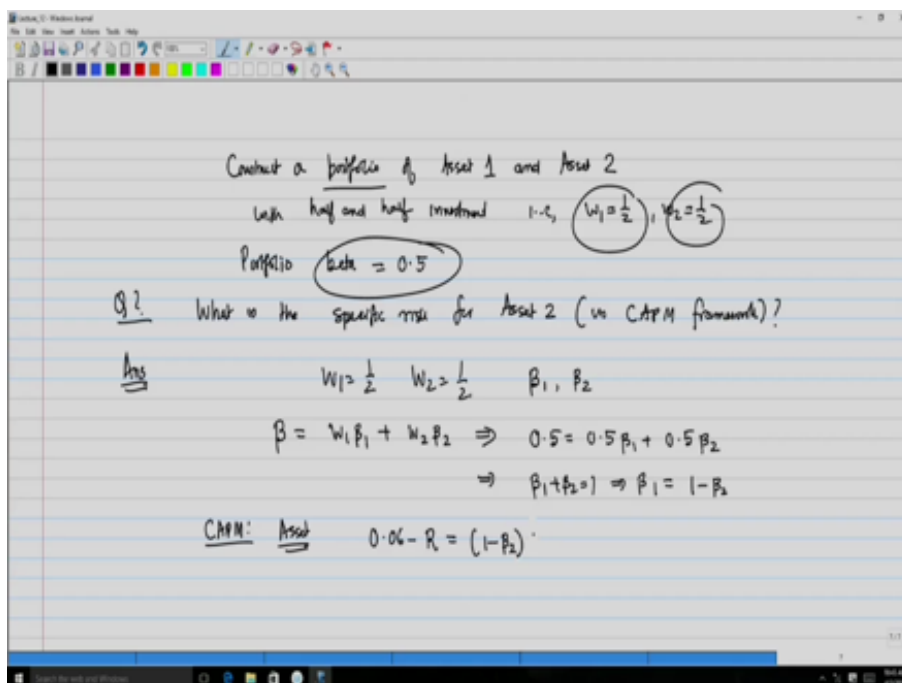 Lecture_12 - Windows Journal
File Edit View Insert Actions Tools Help
B I
Construct a portfolio of Asset 1 and Asset 2
with half and half investment i.e, W₁ = 1/2, W₂ = 1/2
Portfolio beta = 0.5
Q? What is the specific risk for Asset 2 (in CAPM framework)?
Ans W₁ = 1/2 W₂ = 1/2 β₁, β₂
β = W₁β₁ + W₂β₂ ⇒ 0.5 = 0.5β₁ + 0.5β₂
⇒ β₁+β₂=1 ⇒ β₁ = 1-β₂
CAPM: Asset 0.06 - R = (1-β₂)
1/1
Search the web and Windows